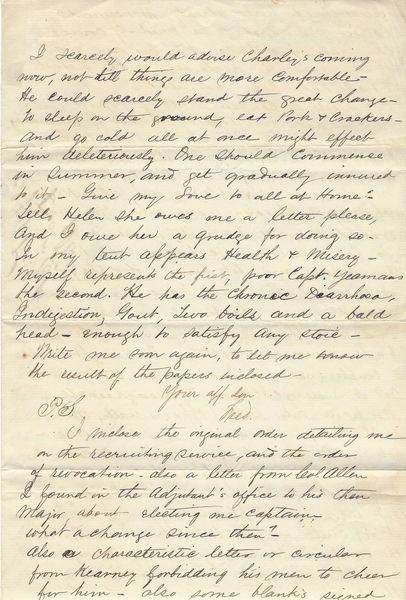 I scarcely would advise Charley's coming
now, not till things are more comfortable -
He could scarcely stand the great change -
to sleep on the ground, eat Pork & Crackers -
and go cold all at once might effect
him deleteriously. One should commense
in summer, and get gradually innured
to it - Give my love to all at Home -
Tell Helen she owes me a letter please,
And I owe her a grudge for doing so -
In my tent appears Health & Misery -
Myself represents the first, poor Capt. Yeamans
the second. He has the Chronic Diarrhoea,
Indigestion, Gout, Two boils and a bald
head - enough to satisfy any stoic -
Write me soon again, to let me know
the result of the papers inclosed -
Your aff. son
Fred.
P.S.
I inclose the original order detailing me
on the recruiting service, and the order
of revocation - also a letter from Col Allen
I found in the Adjutant's office to his then
Major about electing me captain,
what a change since then? -
Also a characteristic letter or circular
from Kearney forbidding his men to cheer
for him - also some blank's signed